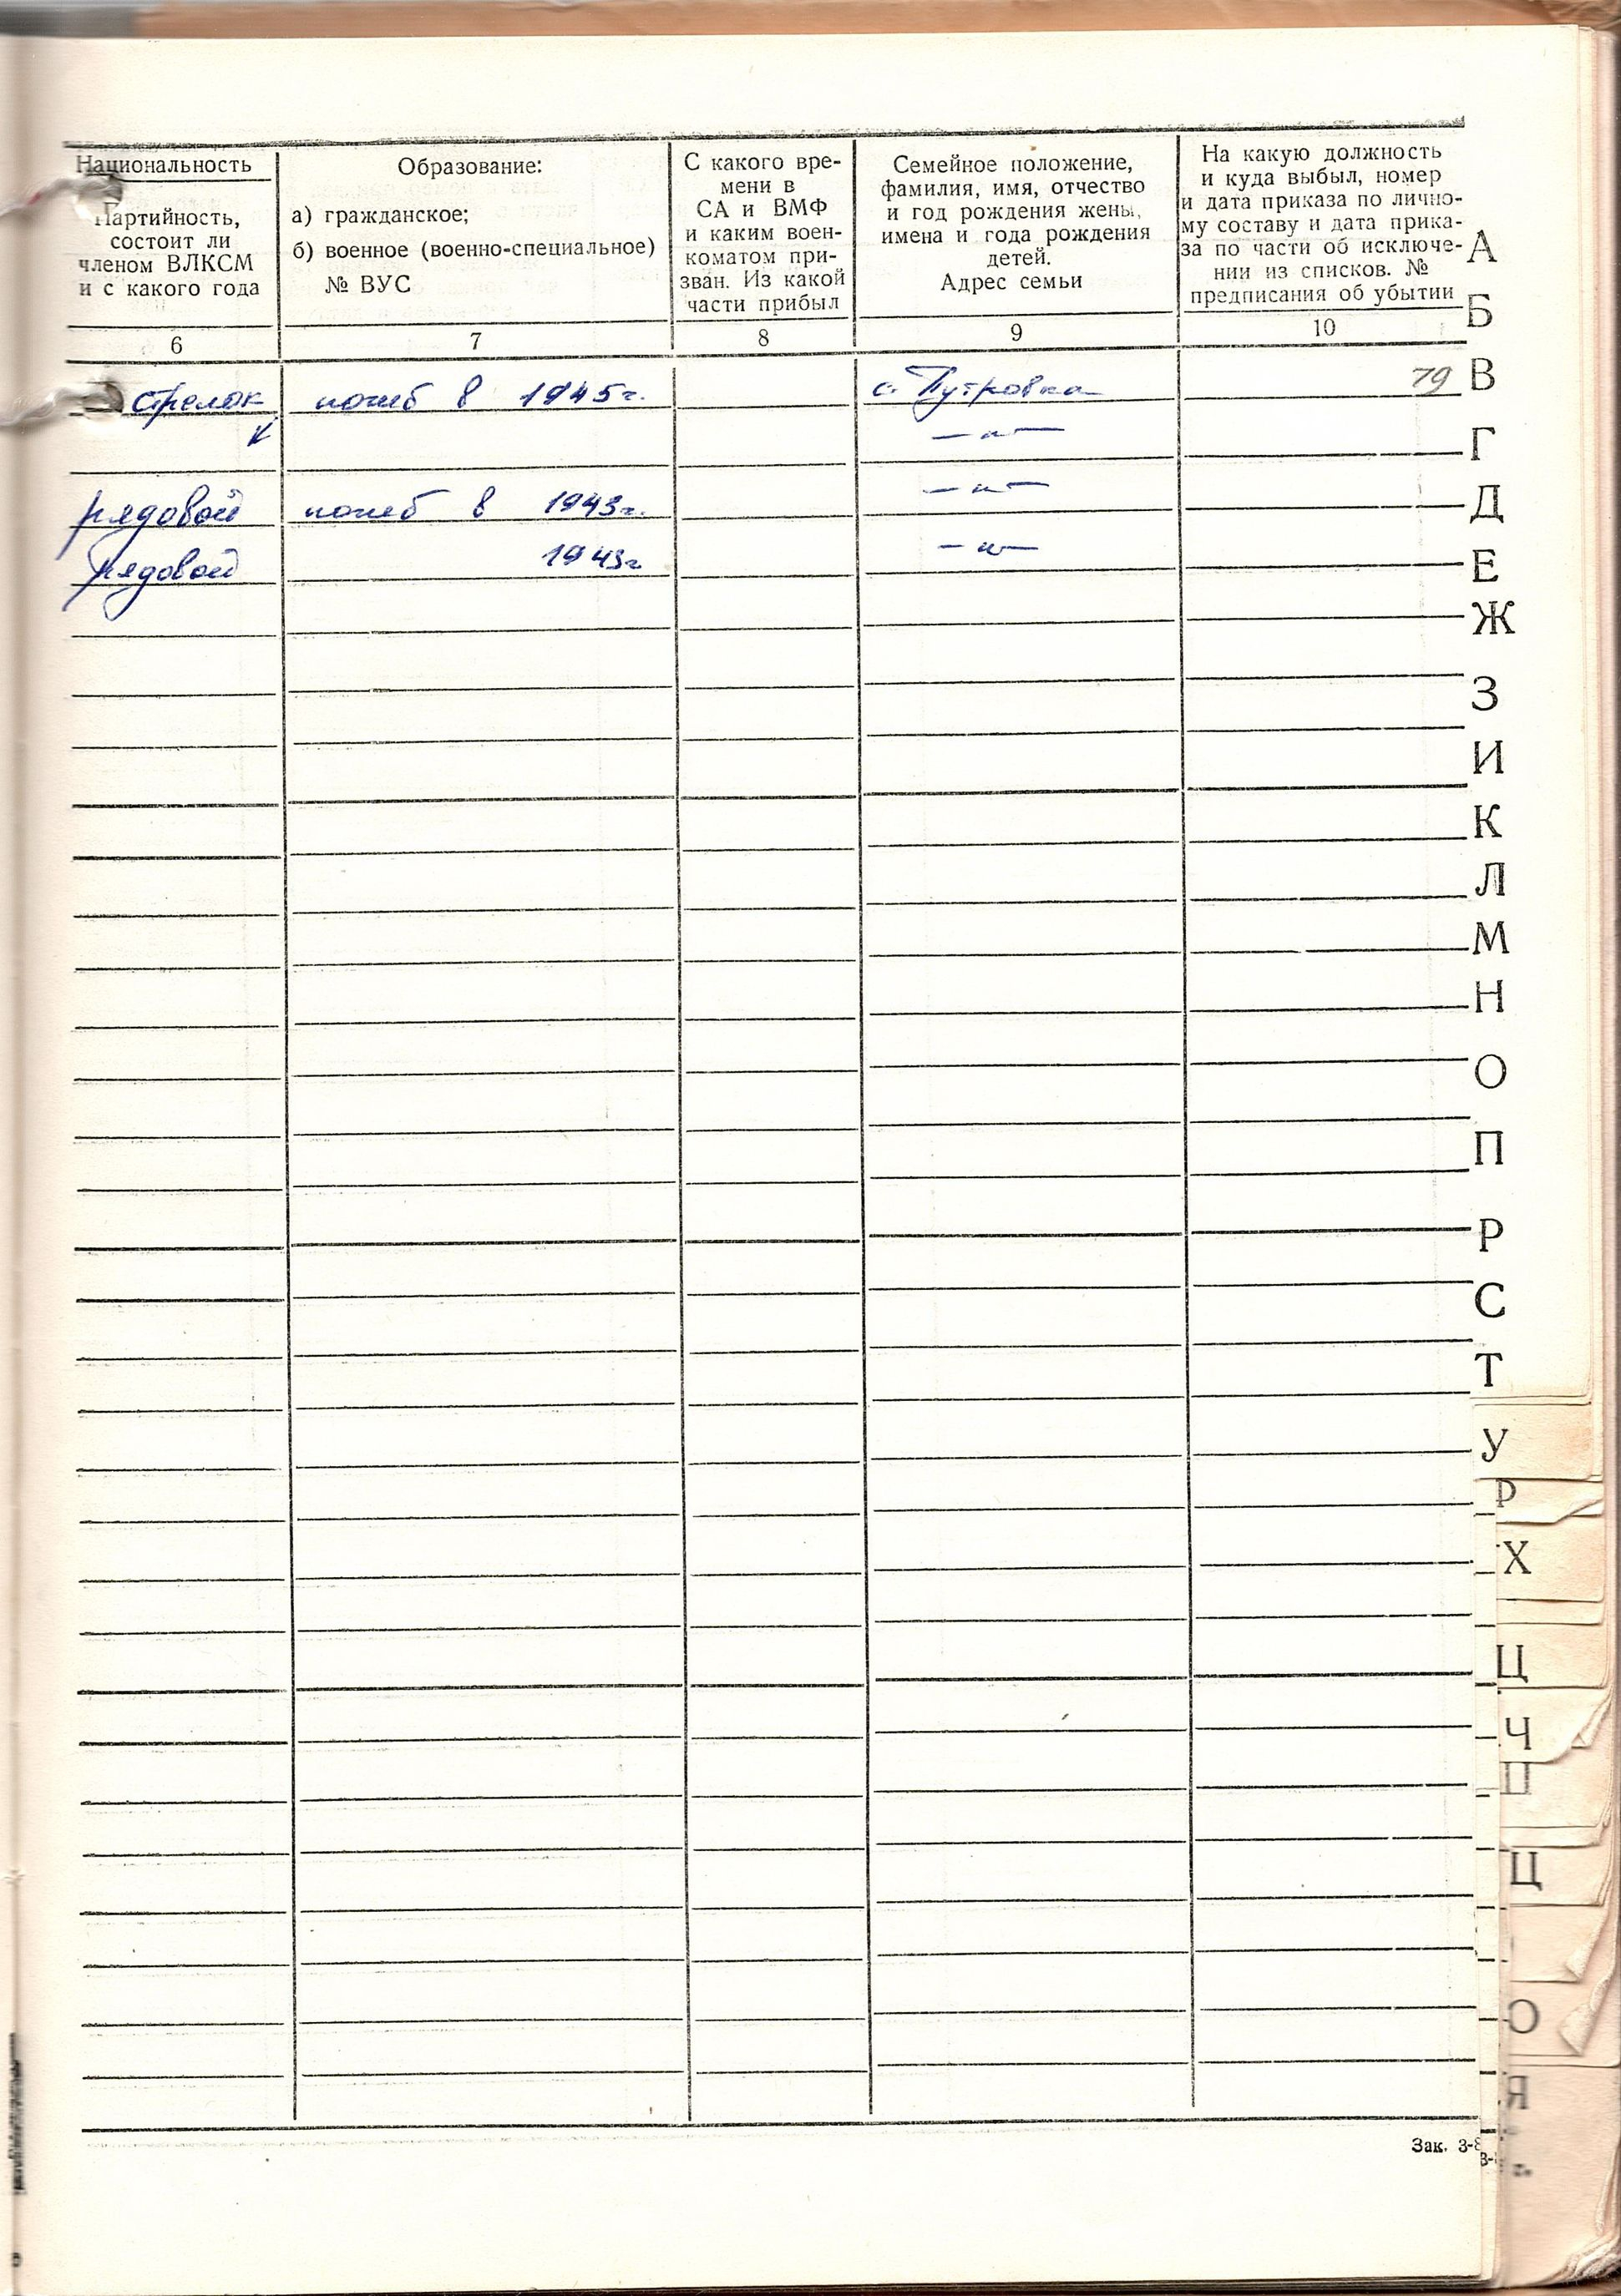 Национальность
Партийность,
состоит ли
членом ВЛКСМ
и с какого года
Образование:
а) гражданское;
б) военное (военно-специальное)
№ ВУС
С какого вре-
мени в
СА и ВМФ
и каким воен-
коматом при-
зван. Из какой
части прибыл
Семейное положение,
фамилия, имя, отчество
и год рождения жены,
имена и года рождения
детей.
Адрес семьи
На какую должность
и куда выбыл, номер
и дата приказа по лично-
му составу и дата прика-
за по части об исключе-
нии из списков. №
предписания об убытии
6 7 8 9 10
стрелок погиб в 1945г. с. Путровка 79
— " —
рядовой погиб в 1943г. — " —
рядовой 1943г — " —
А
Б
В
Г
Д
Е
Ж
З
И
К
Л
М
Н
О
П
Р
С
Т
У
Х
Ц
Ч
Ц
Ю
Я
Зак. 3-